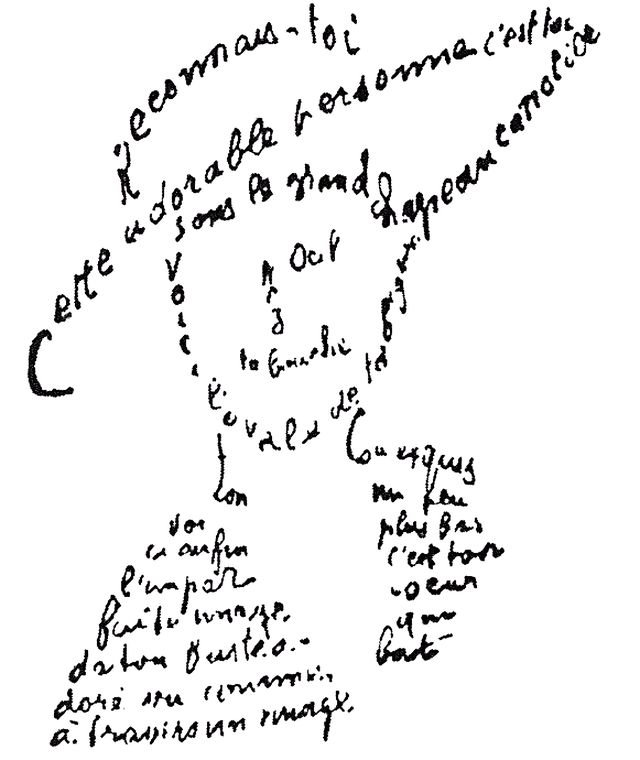 Reconnais-toi
Cette adorable personne c'est toi
Sous le grand chapeau canotier
Oeil
Nez
ta bouche
Voici l'ovale de ta figure
ton
Cou exquis
Voi
ci enfin
l'impar
faite image
de ton buste a
doré vu comme
à travers un nuage
un peu
plus bas
c'est ton
coeur
qui
bat